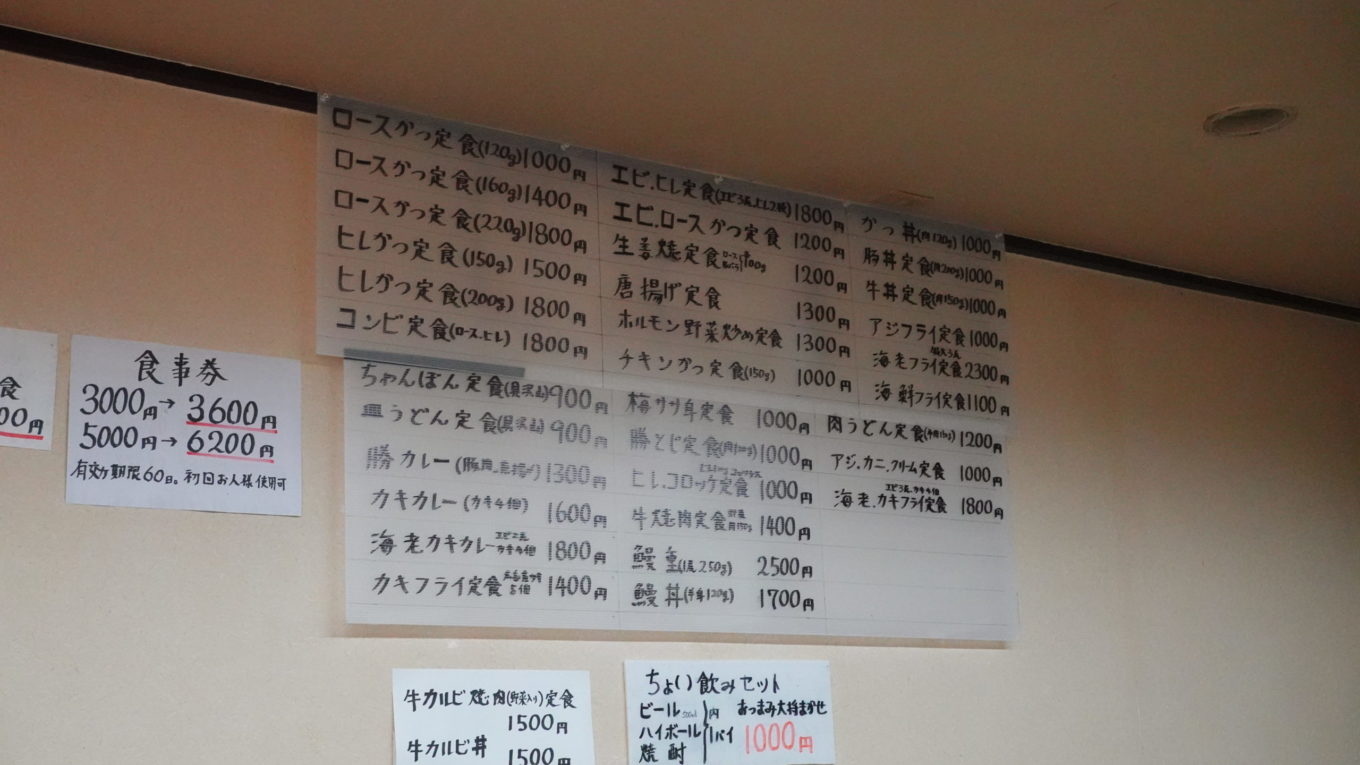 ロースかつ定食(120g)1000円
ロースかつ定食(160g)1400円
ロースかつ定食(220g)1800円
ヒレかつ定食(150g) 1500円
ヒレかつ定食(200g) 1800円
コンビ定食(ロース.ヒレ) 1800円
エビ.ヒレ定食 1800円
エビ.ロースかつ定食 1200円
生姜焼定食 1200円
唐揚げ定食 1300円
ホルモン野菜炒め定食 1300円
チキンかつ定食(150g) 1000円
かつ丼(肉120g) 1000円
豚丼定食(肉200g)1000円
牛丼定食(肉150g)1000円
アジフライ定食1000円
海老フライ定食2300円
海鮮フライ定食1100円
ちゃんぽん定食(具沢山)900円
皿うどん定食(具沢山)900円
勝カレー 1300円
カキカレー(カキ4個) 1600円
海老カキカレー エビ2尾 カキ4個 1800円
カキフライ定食 5個 1400円
梅ササ身定食 1000円
勝とじ定食 1000円
ヒレ.コロッケ定食 1000円
牛焼肉定食 1400円
鰻重(1尾250g) 2500円
鰻丼(半身120g) 1700円
肉うどん定食 1200円
アジ.カニ.クリーム定食 1000円
エビ3尾.カキ4個
海老.カキフライ定食 1800円
食
00円
食事券
3000円→3600円
5000円→6200円
有効期限60日。初回お人様使用可
牛カルビ焼肉(野菜入り)定食
1500円
牛カルビ丼
1500円
ちょい飲みセット
ビール 500ml 内 おつまみ大将まかせ
ハイボール 1パイ 1000円
焼酎